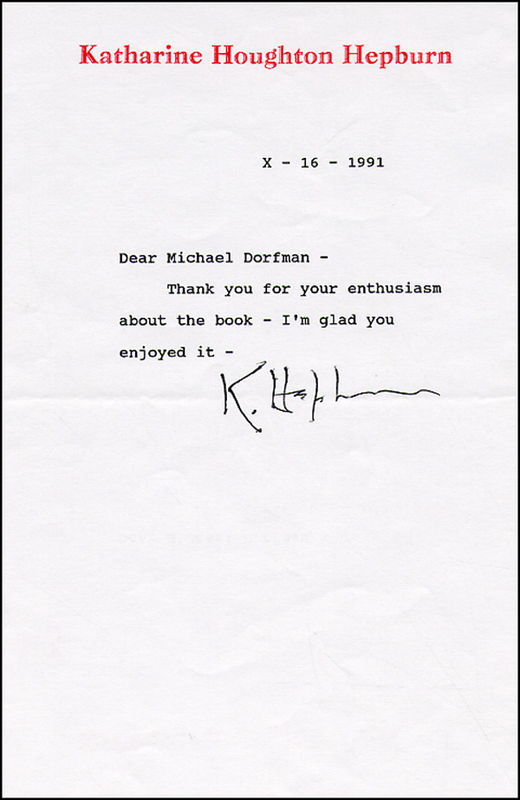 Katharine Houghton Hepburn
X - 16 - 1991
Dear Michael Dorfman -
Thank you for your enthusiasm
about the book - I'm glad you
enjoyed it -
K. Hepburn